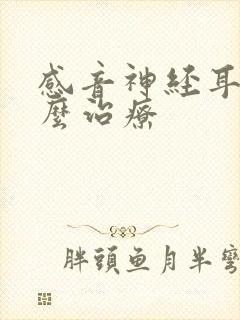 感音神経耳
麼治療
胖頭魚月半彎